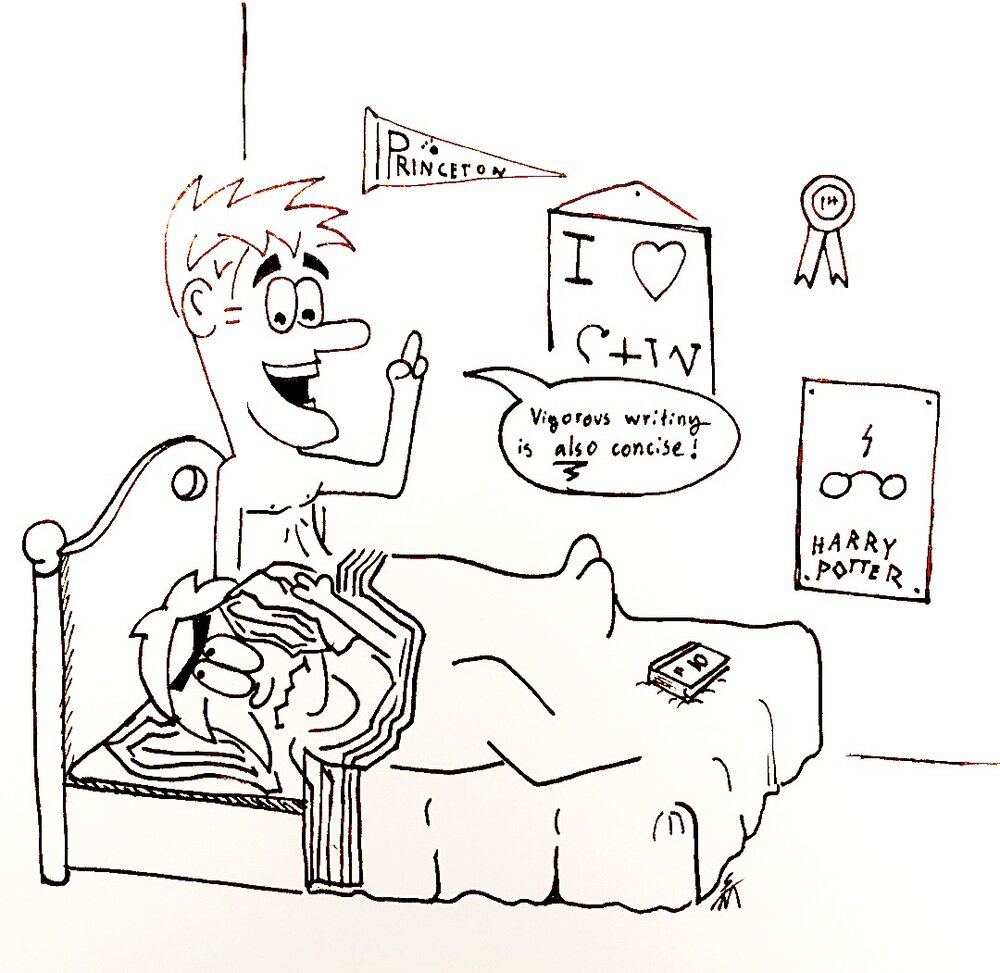 PRINCETON
I ♥
Vigorous writing
is also concise!
HARRY
POTTER